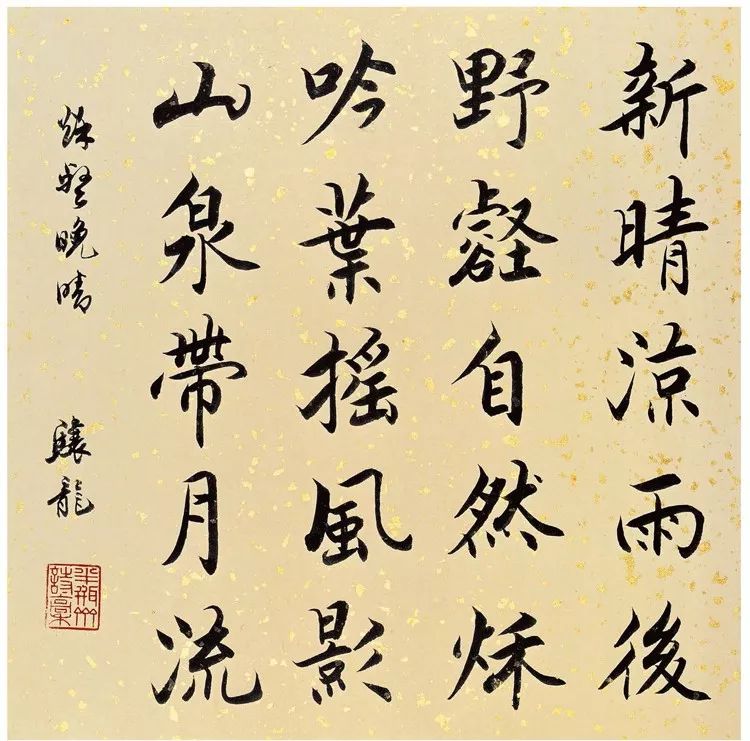 新晴涼雨後
野壑自然秌
吟葉摇風影
山泉帶月流
秌壑晚晴
驤龍